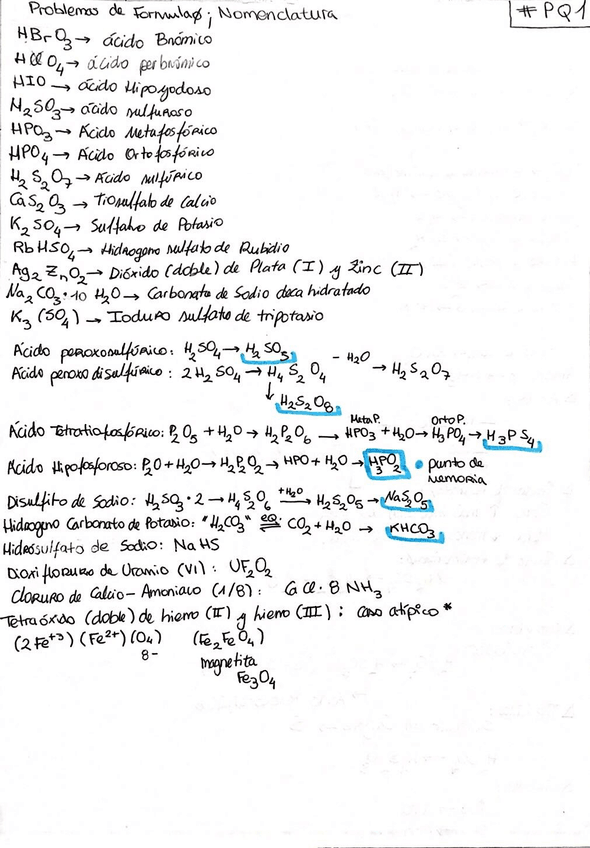 Problemas de Formulas; Nomenclatura
# PQ1
HBrO3 → ácido Brómico
HClO4 → ácido perbrómico
HIO → ácido Hipoyodoso
H2SO3 → ácido sulfuroso
HPO3 → Ácido Metafosfórico
HPO4 → Ácido Ortofosfórico
H2S2O7 → Ácido sulfúrico
CaS2O3 → Tiosulfato de Calcio
K2SO4 → Sulfato de Potasio
RbHSO4 → Hidrogeno sulfato de Rubidio
Ag2ZnO2 → Dióxido (doble) de Plata (I) y Zinc (II)
Na2CO3·10 H2O → Carbonato de Sodio decahidratado
K3(SO4) → Ioduro sulfato de tripotasio
Ácido peroxosulfúrico: H2SO4 → H2SO5
Ácido peroxodisulfúrico: 2H2SO4 → H4S2O4 -H2O → H2S2O7
↓
H2S2O8
MetaP. OrtoP.
Ácido Tetratiofosfórico: P2O5 + H2O → H2P2O6 → HPO3 + H2O → H3PO4 → H3PS4
Ácido Hipofosforoso: P2O + H2O → H2P2O2 → HPO + H2O → H3PO2 • punto de memoria
Disulfito de Sodio: H2SO3·2 → H4S2O6 +H2O → H2S2O5 → NaS2O5
Hidrogeno Carbonato de Potasio: "H2CO3" eq. ⇌ CO2 + H2O → KHCO3
Hidrosulfato de Sodio: NaHS
Dioxifloruro de Uranio (VI): UF2O2
Cloruro de Calcio-Amoniaco (1/8): CaCl·8 NH3
Tetraóxido (doble) de hierro (II) y hierro (III): caso atípico *
(2Fe+3) (Fe2+) (O4) (Fe2FeO4)
8-
magnetita
Fe3O4